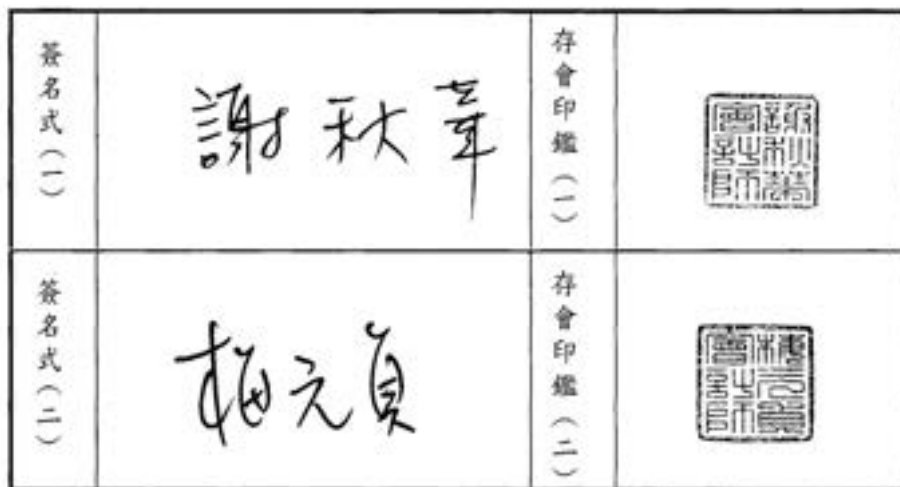 簽名式(一)
謝秋華
存會印鑑(一)
謝秋華會計師
簽名式(二)
梅元貞
存會印鑑(二)
梅元貞會計師